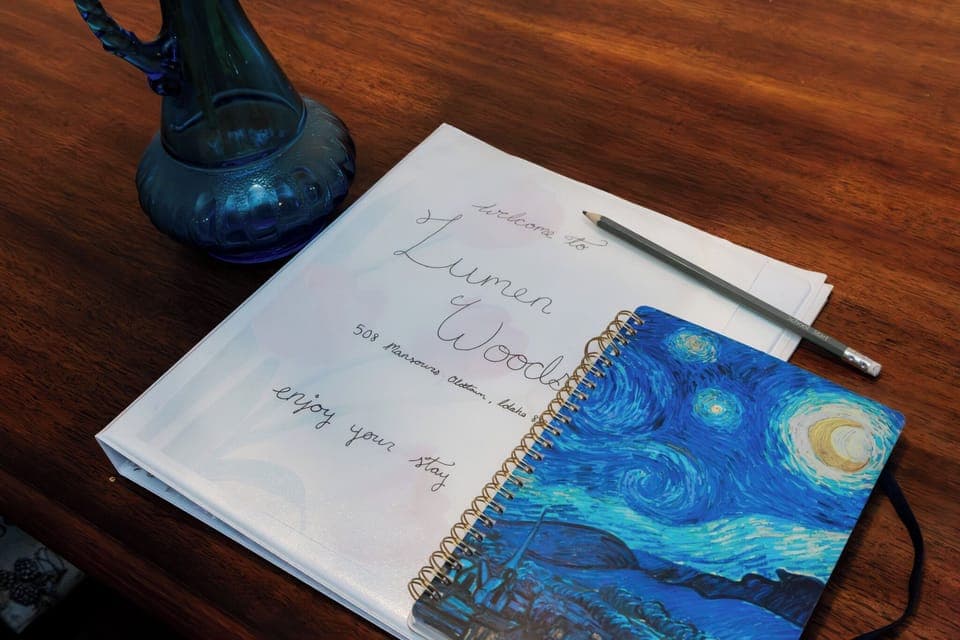 welcome to
Lumen
Woods
508 Mansours Oldtown, Idaho 8
enjoy your stay